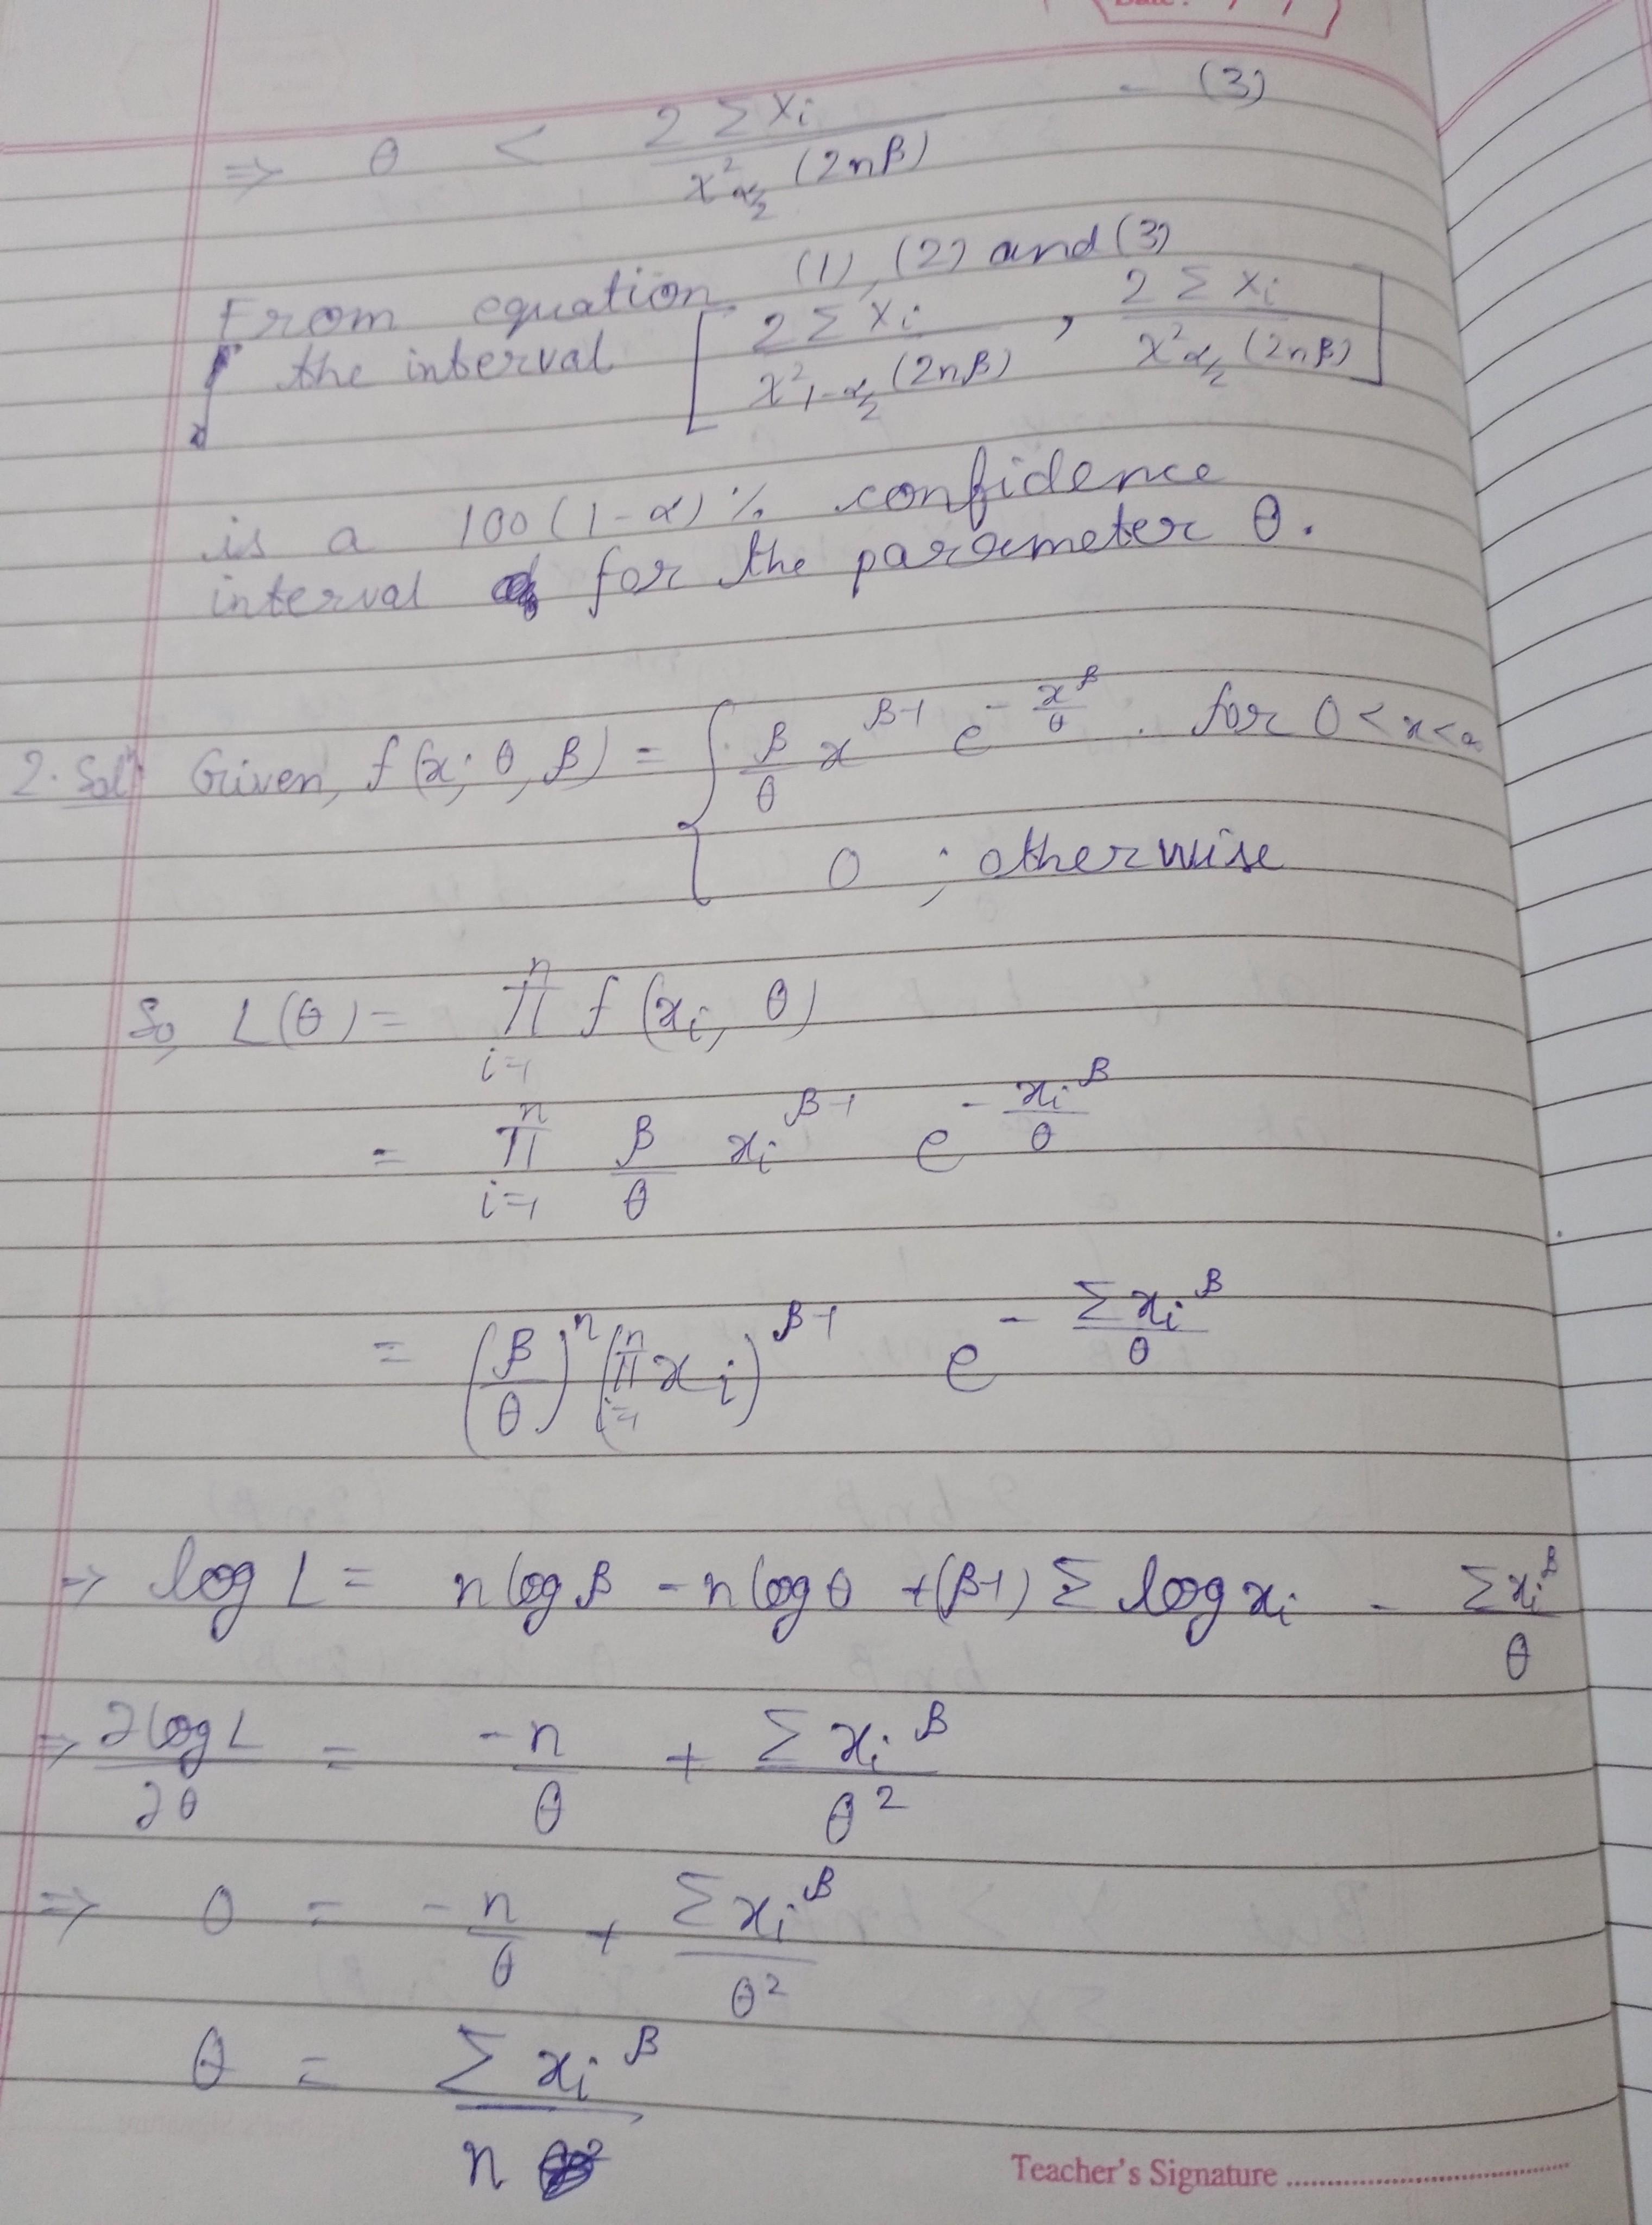 Date : / /
⇒ θ < 2 Σ Xi / χ²α/2 (2nβ) - (3)
From equation (1), (2) and (3)
the interval [ 2 Σ Xi / χ²1-α/2 (2nβ) , 2 Σ Xi / χ²α/2 (2nβ) ]
is a 100 (1-α) % confidence
interval for the parameter θ.
2. Solⁿ Given, f(x; θ, β) = { β/θ x^(β-1) e^(-x^β/θ) . for 0 < x < ∞
0 ; otherwise
So, L(θ) = ∏_(i=1)^n f (xi, θ)
= ∏_(i=1)^n β/θ xi^(β-1) e^(-xi^β/θ)
= (β/θ)^n (∏_(i=1)^n xi)^(β-1) e^(-Σxi^β/θ)
⇒ log L = n log β - n log θ + (β-1) Σ log xi - Σxi^β/θ
⇒ ∂ log L/∂θ = -n/θ + Σ xi^β/θ²
⇒ 0 = -n/θ + Σ xi^β/θ²
θ = Σ xi^β/n
Teacher's Signature ..............................